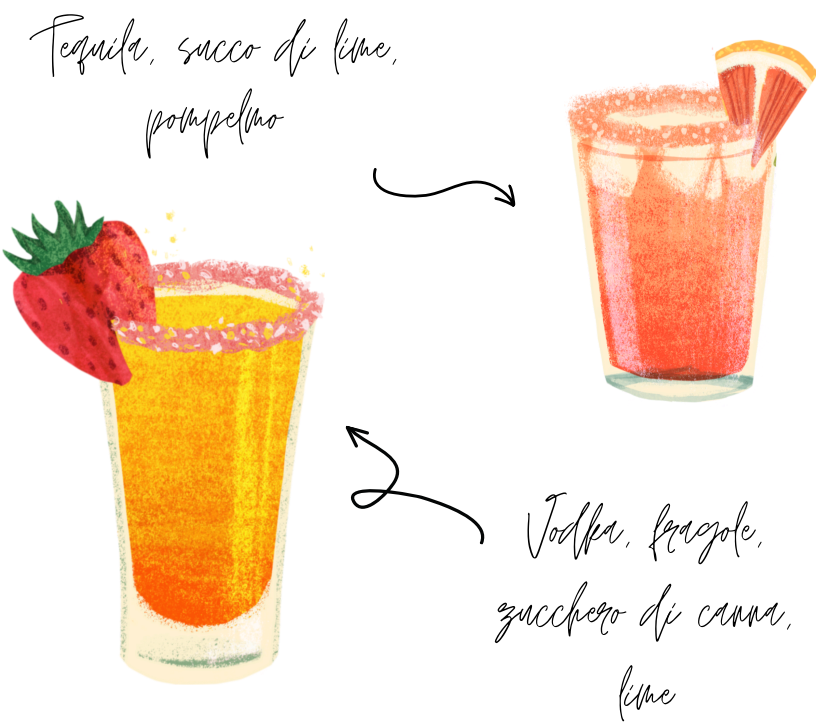 Tequila, succo di lime,
pompelmo
Vodka, fragole,
zucchero di canna,
lime